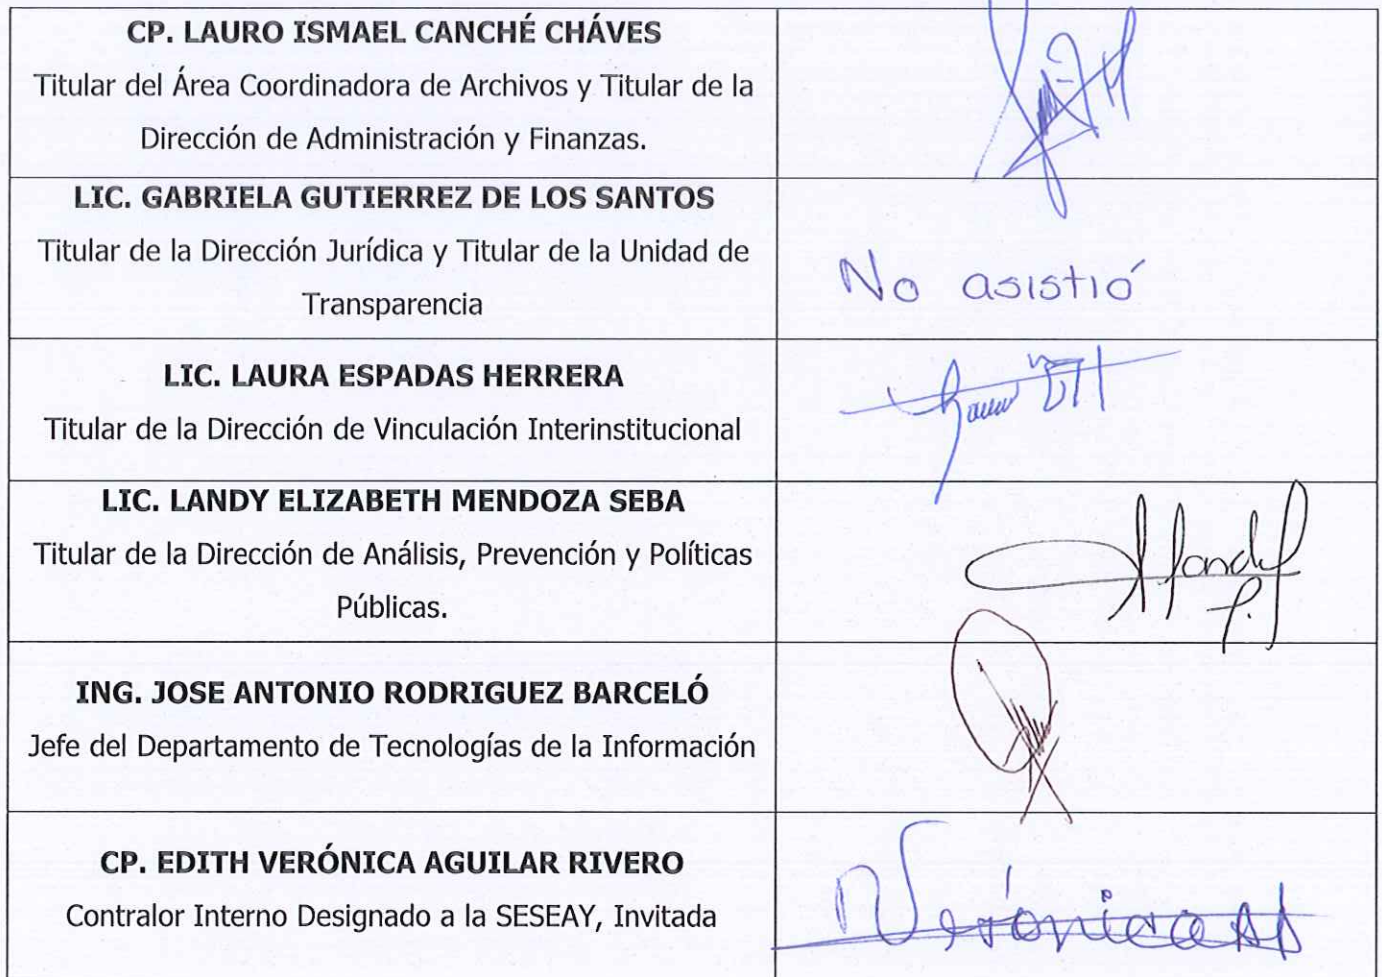 CP. LAURO ISMAEL CANCHÉ CHÁVES
Titular del Área Coordinadora de Archivos y Titular de la
Dirección de Administración y Finanzas.
LIC. GABRIELA GUTIERREZ DE LOS SANTOS
Titular de la Dirección Jurídica y Titular de la Unidad de
Transparencia
No asistió
LIC. LAURA ESPADAS HERRERA
Titular de la Dirección de Vinculación Interinstitucional
LIC. LANDY ELIZABETH MENDOZA SEBA
Titular de la Dirección de Análisis, Prevención y Políticas
Públicas.
ING. JOSE ANTONIO RODRIGUEZ BARCELÓ
Jefe del Departamento de Tecnologías de la Información
CP. EDITH VERÓNICA AGUILAR RIVERO
Contralor Interno Designado a la SESEAY, Invitada
Verónica